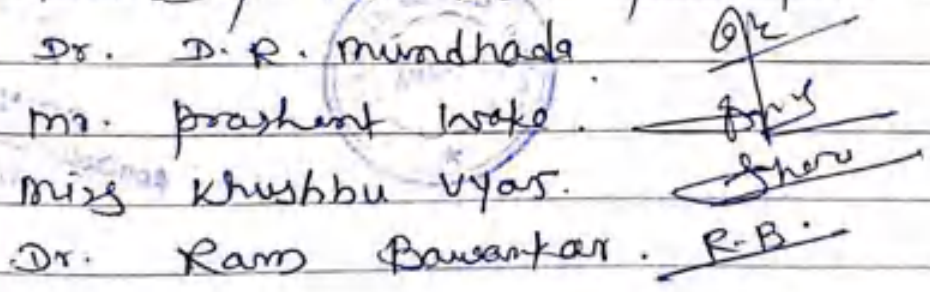 Dr. D. R. Mundhada
Mr. Prashant Wake.
Miss Khushbu Vyas.
Dr. Ram Bawankar. R.B.